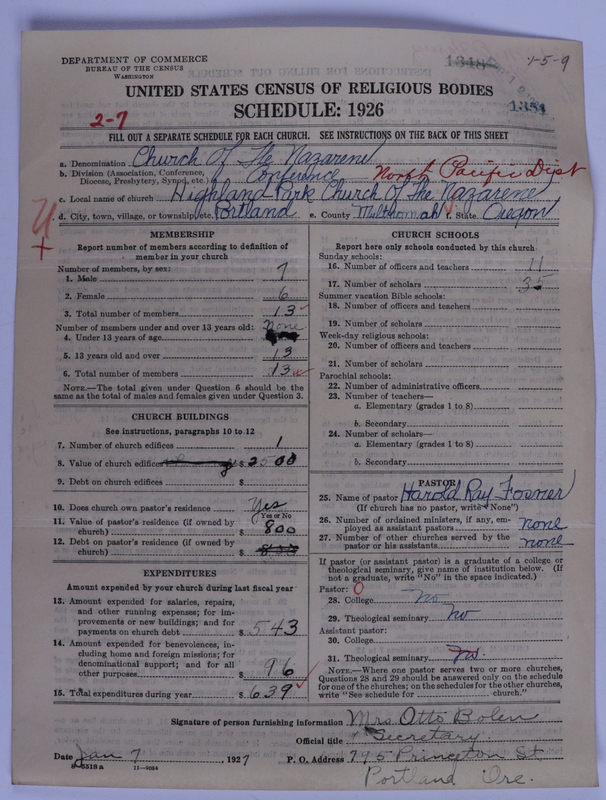 DEPARTMENT OF COMMERCE
BUREAU OF THE CENSUS
WASHINGTON
1-5-9
1354
UNITED STATES CENSUS OF RELIGIOUS BODIES
SCHEDULE: 1926
2-7
FILL OUT A SEPARATE SCHEDULE FOR EACH CHURCH. SEE INSTRUCTIONS ON THE BACK OF THIS SHEET
a. Denomination Church Of The Nazarene
b. Division (Association, Conference, Diocese, Presbytery, Synod, etc.) Conference North Pacific Dist
c. Local name of church Highland Park Church Of The Nazarene
d. City, town, village, or township, etc. Portland e. County Multhomah f. State Oregon
MEMBERSHIP
Report number of members according to definition of
member in your church
Number of members, by sex:
1. Male 7
2. Female 6
3. Total number of members 13
Number of members under and over 13 years old:
4. Under 13 years of age none
5. 13 years old and over 13
6. Total number of members 13
NOTE.—The total given under Question 6 should be the
same as the total of males and females given under Question 3.
CHURCH BUILDINGS
See instructions, paragraphs 10 to 12
7. Number of church edifices 1
8. Value of church edifices $ 2500
9. Debt on church edifices $
10. Does church own pastor's residence Yes
Yes or No
11. Value of pastor's residence (if owned by
church) $ 800
12. Debt on pastor's residence (if owned by
church) $
EXPENDITURES
Amount expended by your church during last fiscal year
13. Amount expended for salaries, repairs,
and other running expenses; for im-
provements or new buildings; and for
payments on church debt $ 543
14. Amount expended for benevolences, in-
cluding home and foreign missions; for
denominational support; and for all
other purposes $ 96
15. Total expenditures during year $ 639
CHURCH SCHOOLS
Report here only schools conducted by this church
Sunday schools:
16. Number of officers and teachers 11
17. Number of scholars 35
Summer vacation Bible schools:
18. Number of officers and teachers
19. Number of scholars
Week-day religious schools:
20. Number of officers and teachers
21. Number of scholars
Parochial schools:
22. Number of administrative officers
23. Number of teachers—
a. Elementary (grades 1 to 8)
b. Secondary
24. Number of scholars—
a. Elementary (grades 1 to 8)
b. Secondary
PASTOR
25. Name of pastor Harold Ray Fosner
(If church has no pastor, write "None")
26. Number of ordained ministers, if any, em-
ployed as assistant pastors none
27. Number of other churches served by the
pastor or his assistants none
If pastor (or assistant pastor) is a graduate of a college or
theological seminary, give name of institution below. (If
not a graduate, write "No" in the space indicated.)
Pastor: 0
28. College no
29. Theological seminary no
Assistant pastor:
30. College
31. Theological seminary no
NOTE.—Where one pastor serves two or more churches,
Questions 28 and 29 should be answered only on the schedule
for one of the churches; on the schedules for the other churches,
write "See schedule for church."
Signature of person furnishing information Mrs Otto Bolen
Official title Secretary
Date Jan 7 1927 P. O. Address 795 Princeton St
Portland Ore.
8-5318a 11-9034